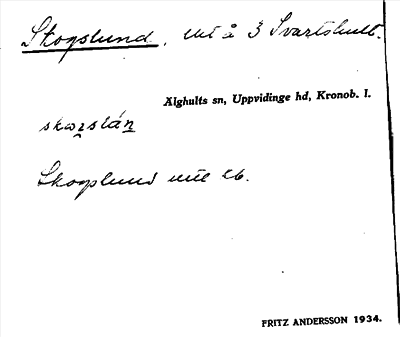 Skogslund, utj å 3 Svartshult.
Älghults sn, Uppvidinge hd, Kronob. l.
skoᶎslán
Skogslund
FRITZ ANDERSSON 1934.